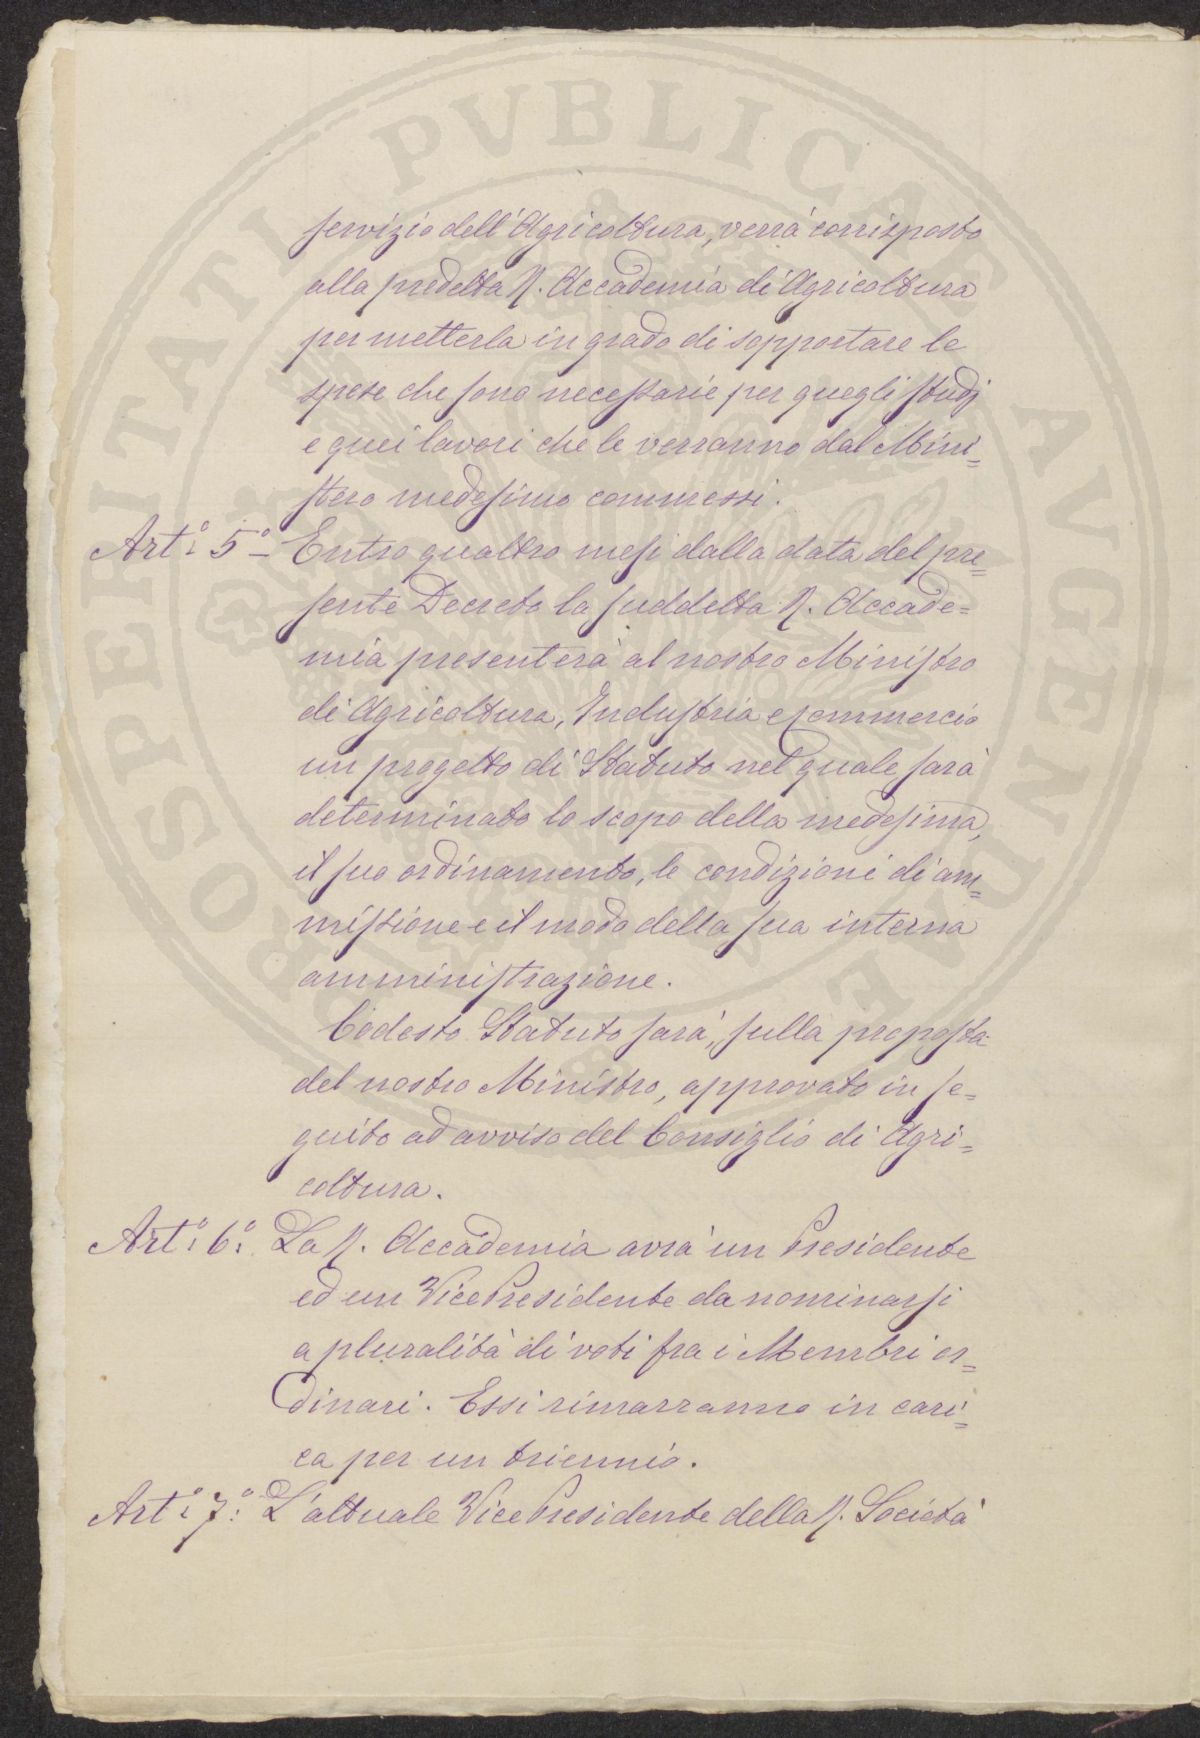 PROSPERITATI PVBLICAE AVGENDAE
servizio dell'Agricoltura, verrà corrisposto
alla predetta R. Accademia di Agricoltura
per metterla in grado di sopportare le
spese che sono necessarie per quegli studj
e quei lavori che le verranno dal Mini=
stero medesimo commessi.
Art.º 5º Entro quattro mesi dalla data del pre=
sente Decreto la suddetta R. Accade=
mia presenterà al nostro Ministro
di Agricoltura, Industria e Commercio
un progetto di Statuto nel quale sarà
determinato lo scopo della medesima,
il suo ordinamento, le condizioni di am=
missione e il modo della sua interna
amministrazione.
Codesto Statuto sarà, sulla proposta
del nostro Ministro, approvato in se=
guito ad avviso del Consiglio di Agri=
coltura.
Art.º 6º. La R. Accademia avrà un Presidente
ed un Vice Presidente da nominarsi
a pluralità di voti fra i Membri or=
dinari. Essi rimarranno in cari=
ca per un triennio.
Art.º 7º. L'attuale Vice Presidente della R. Società